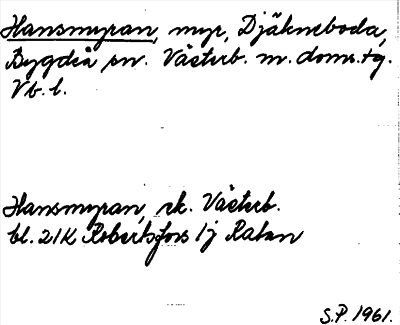 Hansmyran, myr, Djäkneboda,
Bygdeå sn. Västerb. m. doms.tg.
Vb. l.
Hansmyran, rk. Västerb.
bl. 21K Robertsfors 1j Ratan
S.P. 1961.